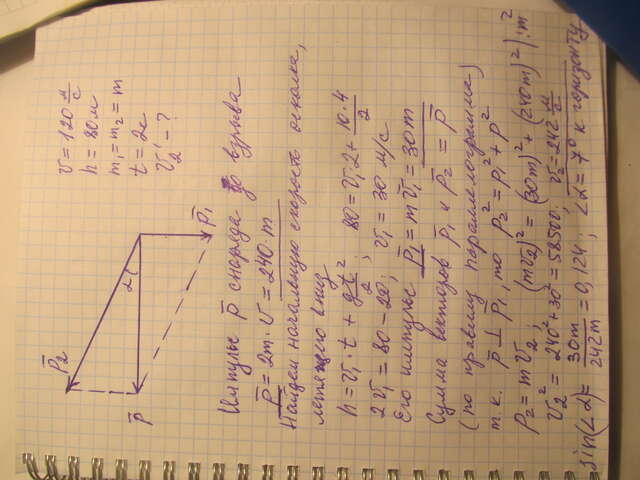 v = 120 м/с
h = 80 м
m₁ = m₂ = m
t = 2с
v₂' - ?
P̄₂
P̄
P̄₁
α
Импульс P̄ снаряда до взрыва
P̄ = 2m · v̄ = 240 · m
Найдем начальную скорость осколка,
летящего вниз
h = v₁ · t + gt²/2; 80 = v₁ · 2 + 10·4/2
2v̄₁ = 80 - 20; v̄₁ = 30 м/с
Его импульс P̄₁ = m v̄₁ = 30m
Сумма векторов P̄₁ и P̄₂ = P̄
(по правилу параллелограмма)
т.к. P̄ ⊥ P̄₁, то P₂² = P₁² + P²
P₂ = m v̄₂; (m v̄₂)² = (30m)² + (240m)² | : m²
v₂² = 240² + 30² = 58500; v₂ = 242 м/с
sin(∠α) = 30m/242m = 0,124; ∠α = 7° к горизонту